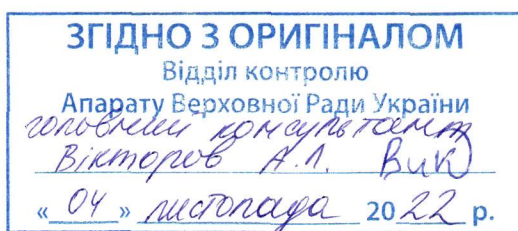 ЗГІДНО З ОРИГІНАЛОМ
Відділ контролю
Апарату Верховної Ради України
головний консультант
Вікторов А.Л. Вик
« 04 » листопада 2022 р.